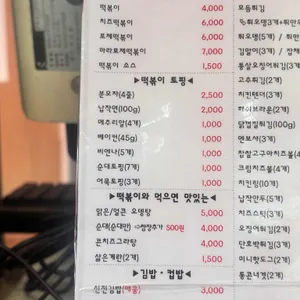 떡볶이 4,000
치즈떡볶이 6,000
로제떡볶이 6,000
마라로제떡볶이 7,000
떡볶이 소스 1,500
♥떡볶이 토핑♥
분모자(4줄) 2,500
납작연(100g) 2,000
메추리알(4개) 1,000
베이컨(45g) 1,000
비엔나(5개) 1,000
순대토핑(7개) 1,000
어묵토핑(3개) 1,000
♥떡볶이와 먹으면 맛있는♥
맑은/얼큰 오뎅탕 5,000
순대(순대만) ⇨찜장추가 500원 4,000
콘치즈그라탕 4,000
삶은계란(2개) 1,500
♥김밥·컵밥♥
신전김밥(매콤) 3,000
모듬튀김
오뎅튀김(5개)
김말이(3개)
통살오징어튀김(2개)
고추튀김(2개)
치킨텐더(3개)
닭껍질튀김(100g)
멘보샤(3개)
찹쌀고구마치즈볼(
크림치즈볼(4개)
치킨링(10개)
납작만두(5개)
치즈스틱(3개)
오징어튀김(2개)
단호박튀김(3개)
미니핫도그(2개)
통큰너겟(2개)